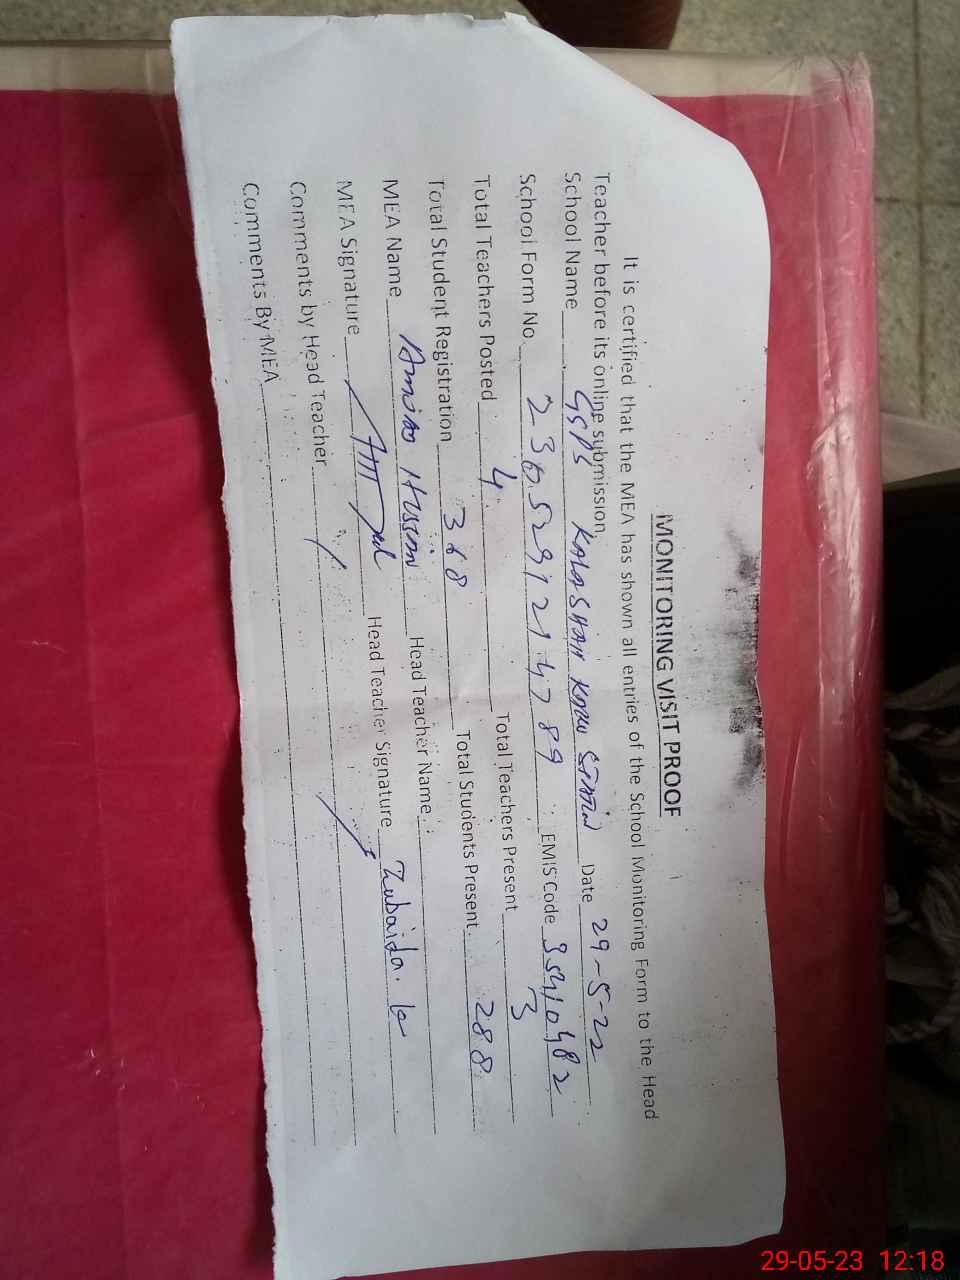 MONITORING VISIT PROOF
It is certified that the MEA has shown all entries of the School Monitoring Form to the Head
Teacher before its online submission.
School Name GGPS KALA SHAH KAKU STATION Date 29-5-22
School Form No. EMIS Code 35410482
Total Teachers Posted 4 Total Teachers Present 3
Total Student Registration 368 Total Students Present 288
MEA Name Hussain Head Teacher Name
MEA Signature Head Teacher Signature Zubaida.
Comments by Head Teacher
Comments By MEA
29-05-23 12:18